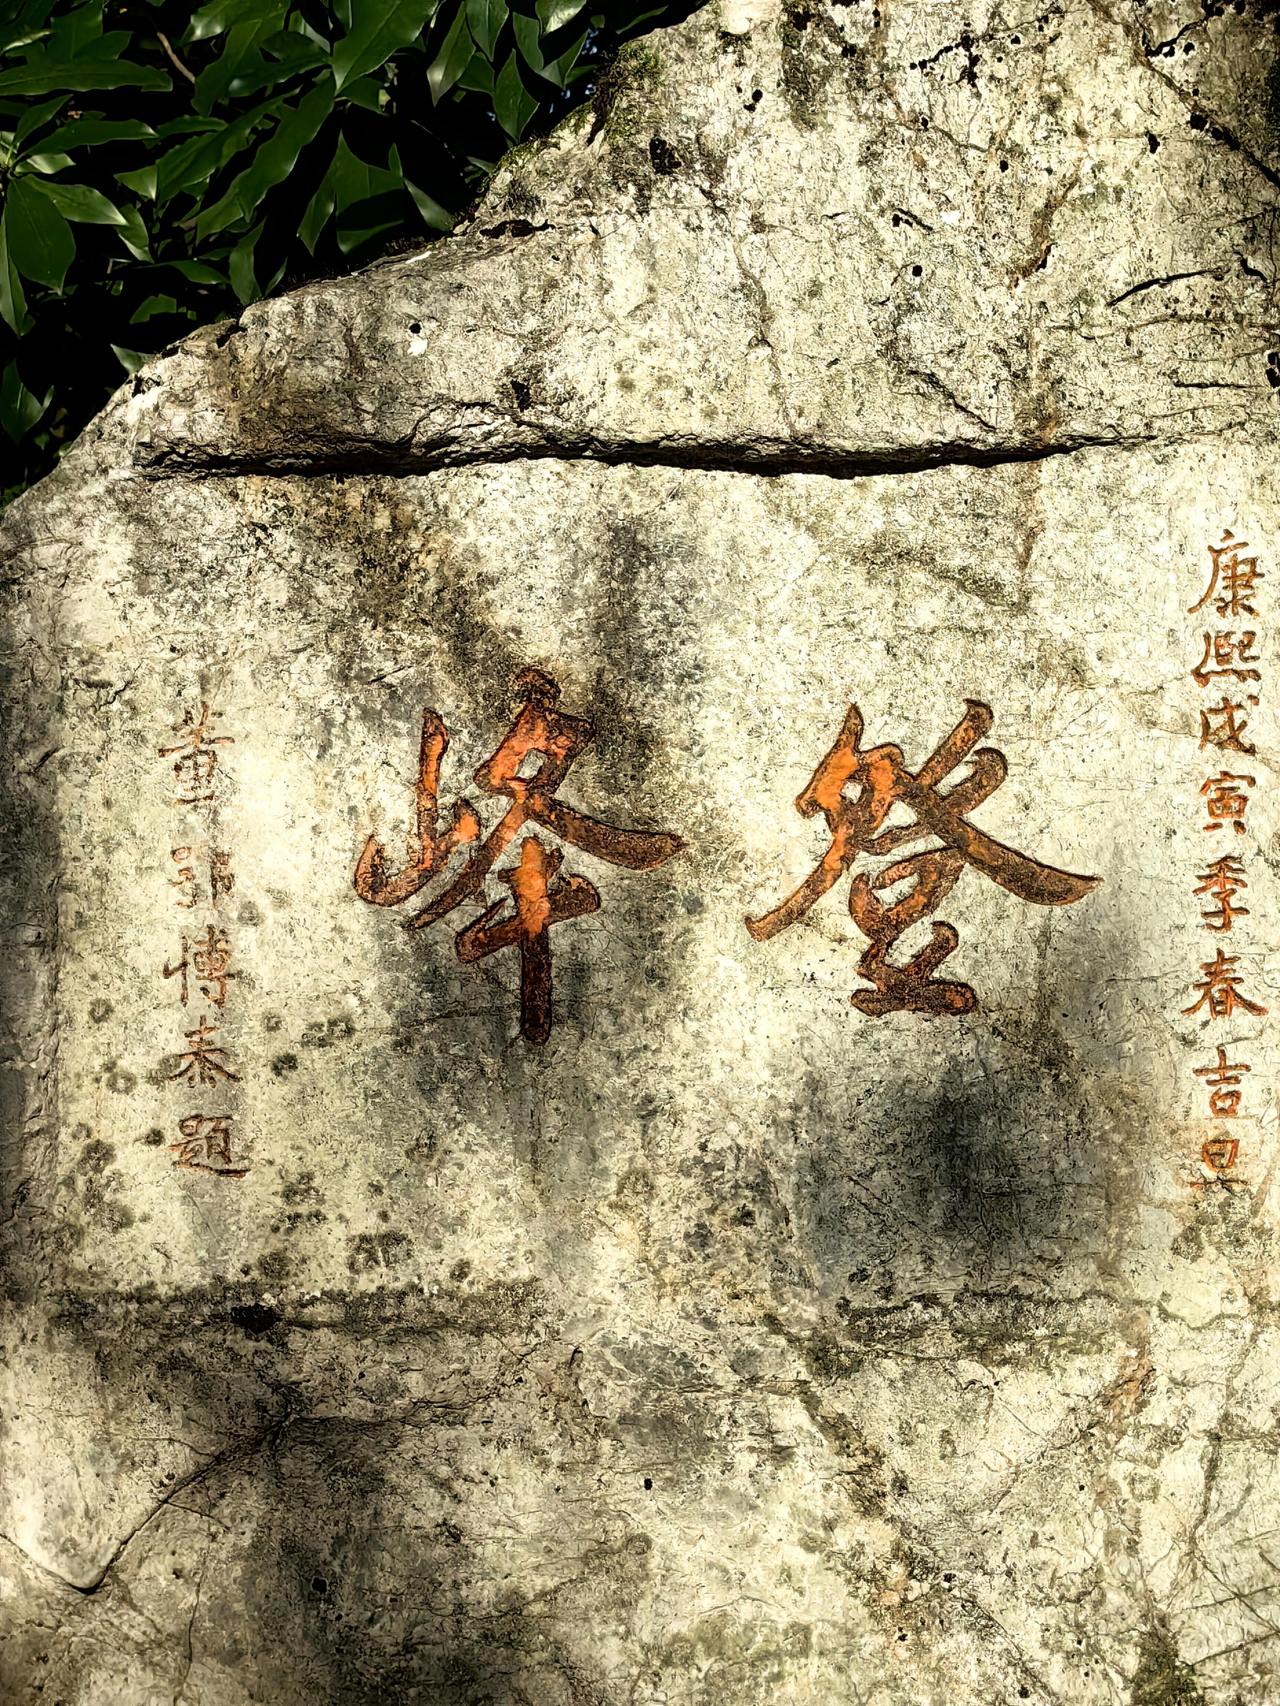 康熙戊寅季春吉旦
登峰
董鄂博泰題